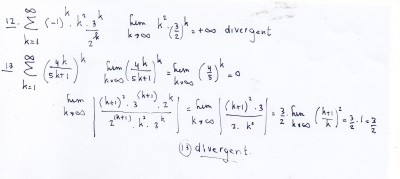 12. ∞ Σ k=1 (-1)^k · k² · 3^k / 2^k lim k→∞ k² · (3/2)^k = +∞ divergent
13 ∞ Σ k=1 (4k / 5k+1)^k lim k→∞ (4k / 5k+1)^k = lim k→∞ (4/5)^k = 0
lim k→∞ | (k+1)² · 3^(k+1) · 2^k / 2^(k+1) · k² · 3^k | = lim k→∞ | (k+1)² · 3 / 2 · k² | = 3/2 lim k→∞ (k+1 / k)² = 3/2 · 1 = 3/2
(13) divergent.